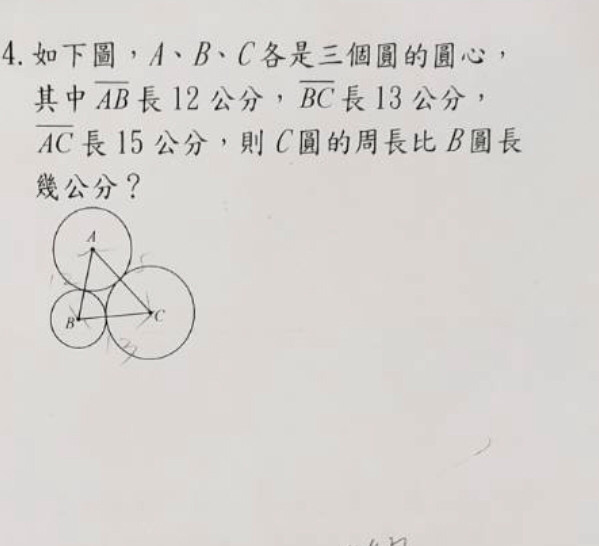 4. 如下圖，A、B、C各是三個圓的圓心，
其中 AB 長 12 公分，BC 長 13 公分，
AC 長 15 公分，則 C圓的周長比 B圓長
幾公分？
A
B
C
13